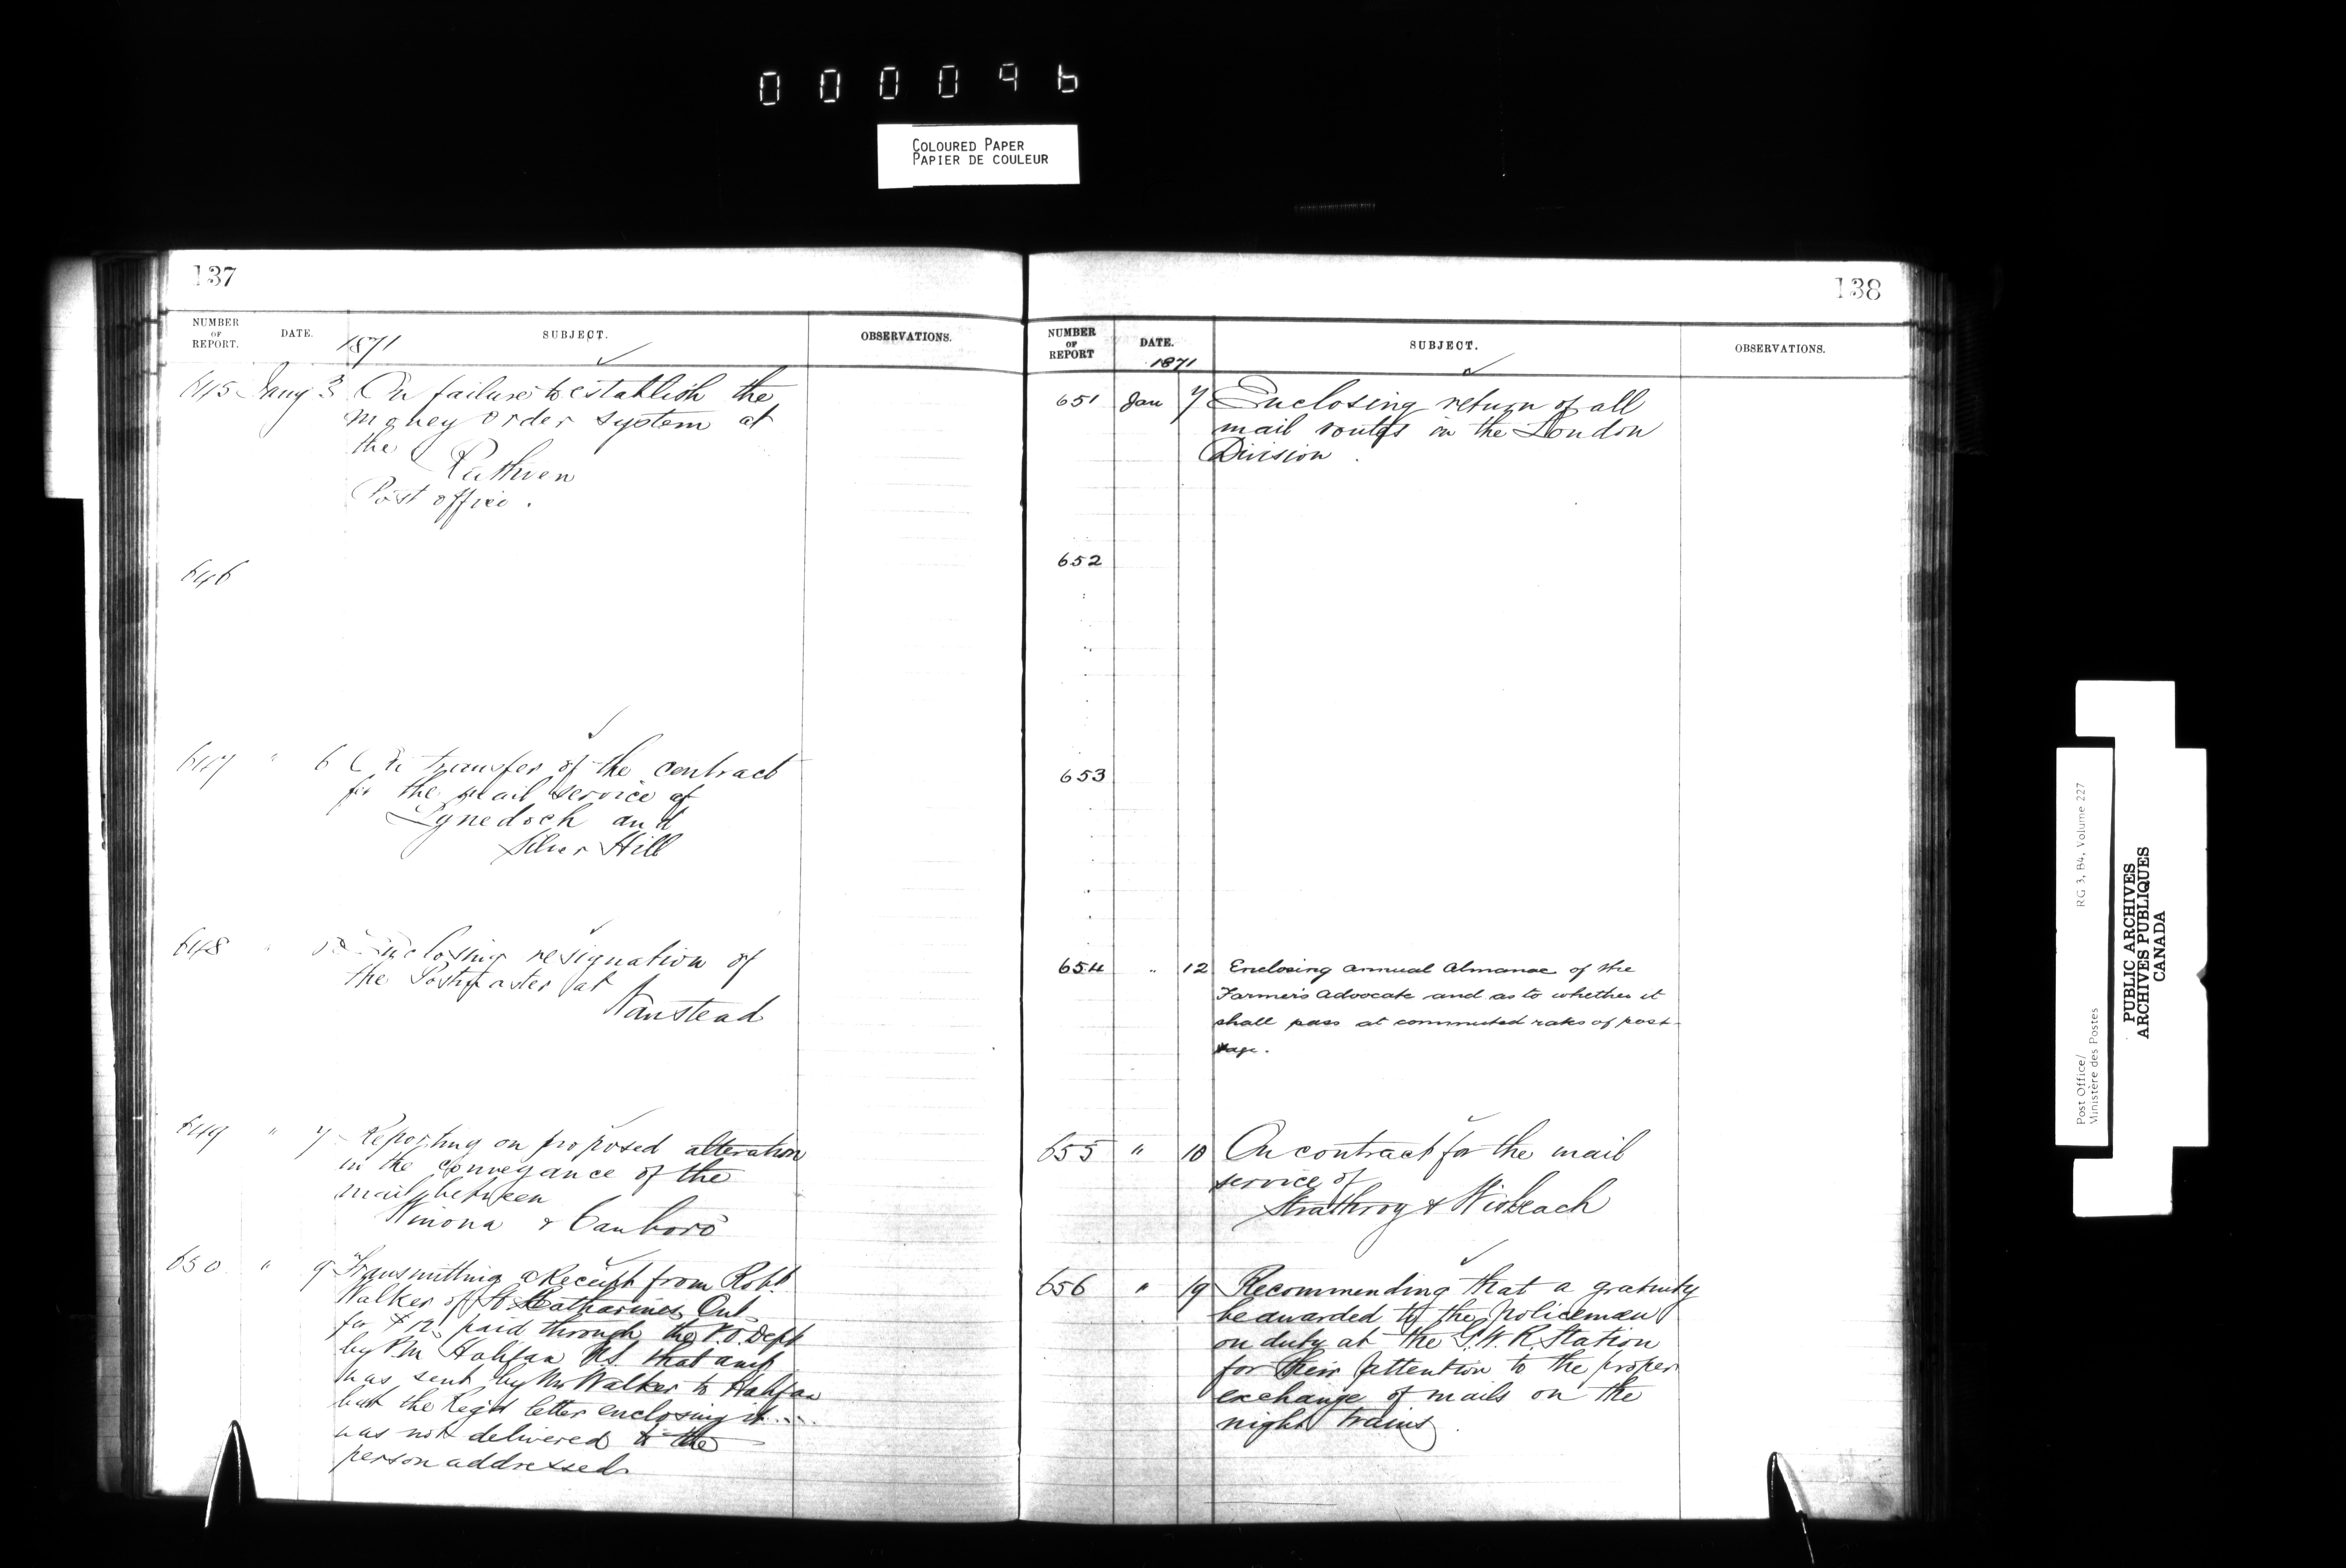 000096
COLOURED PAPER
PAPIER DE COULEUR
137
NUMBER OF REPORT.
DATE.
1871
SUBJECT.
OBSERVATIONS.
645 Jany 3 On failure to establish the
money order system at
the
Ruthven
Post office.
646
647 " 6 On transfer of the contract
for the mail service of
Lynedoch and
Silver Hill
648 " Enclosing resignation of
the Postmaster at
Wanstead
649 " 7 Reporting on proposed alteration
in the conveyance of the
mail between
Winona & Canboro
650 " 9 Transmitting a Receipt from Robt
Walker of St Catharines Ont
for $12, paid through the P.O. Dept
by P.M Halifax N.S. that amt
was sent by Mr Walker to Halifax
but the Regd letter enclosing it
was not delivered to the
person addressed
138
NUMBER OF REPORT
DATE.
1871
SUBJECT.
OBSERVATIONS.
651 Jan 7 Enclosing return of all
mail routes in the London
Division.
652
653
654 " 12 Enclosing annual Almanac of the
Farmer's Advocate and as to whether it
shall pass at commuted rates of post-
age.
655 " 10 On contract for the mail
service of
Strathroy & Wisbeach
656 " 19 Recommending that a gratuity
be awarded to the policeman
on duty at the G.W.R. Station
for their attention to the proper
exchange of mails on the
night trains
Post Office/
Ministère des Postes
RG 3, B4, Volume 227
PUBLIC ARCHIVES
ARCHIVES PUBLIQUES
CANADA